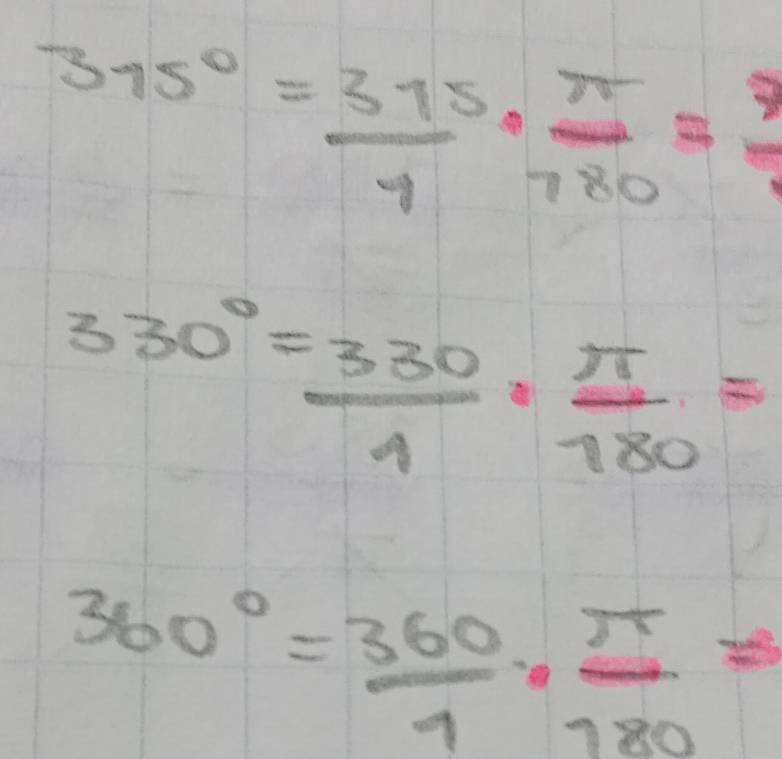 315° = 315/1 · π/180 =
330° = 330/1 · π/180 =
360° = 360/1 · π/180 =